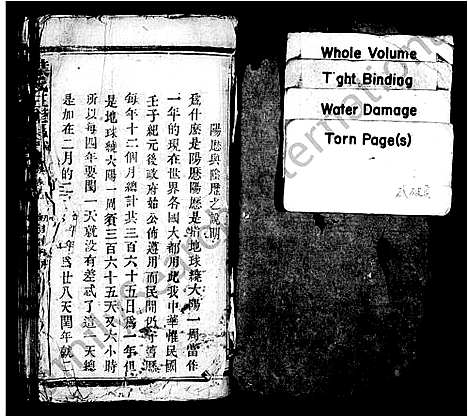 陽歷與陰歷之說明
為什麼是陽歷陽歷是指地球繞太陽一周當作
一年的現在世界各國大都用此我中華惟民國
壬子紀元後政府始公佈遵用而民間仍守舊歷
每年十二個月總計共三百六十五日為一年但
是地球繞太陽一周須三百六十五天又六小時
所以每四年要閏一天就沒有差忒了這一天總
是加在二月的
年為廿八天閏年就
Whole Volume
Tight Binding
Water Damage
Torn Page(s)